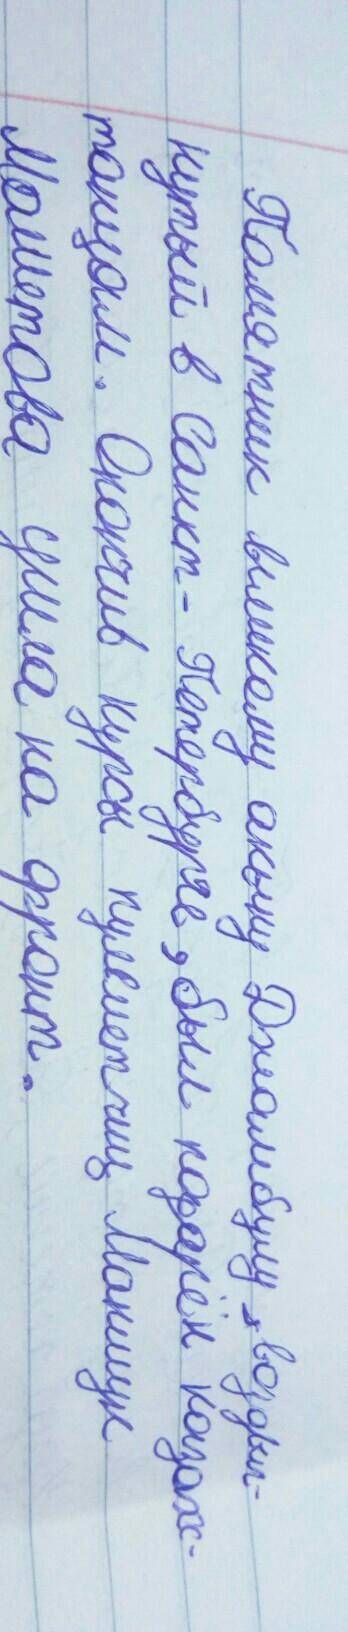 Памятник великому акыну Джамбулу, воздвиг-
нутый в Санкт-Петербурге, был подарен казахс-
танцам. Окончив курсы пулеметчиц Маншук
Маметова ушла на фронт.